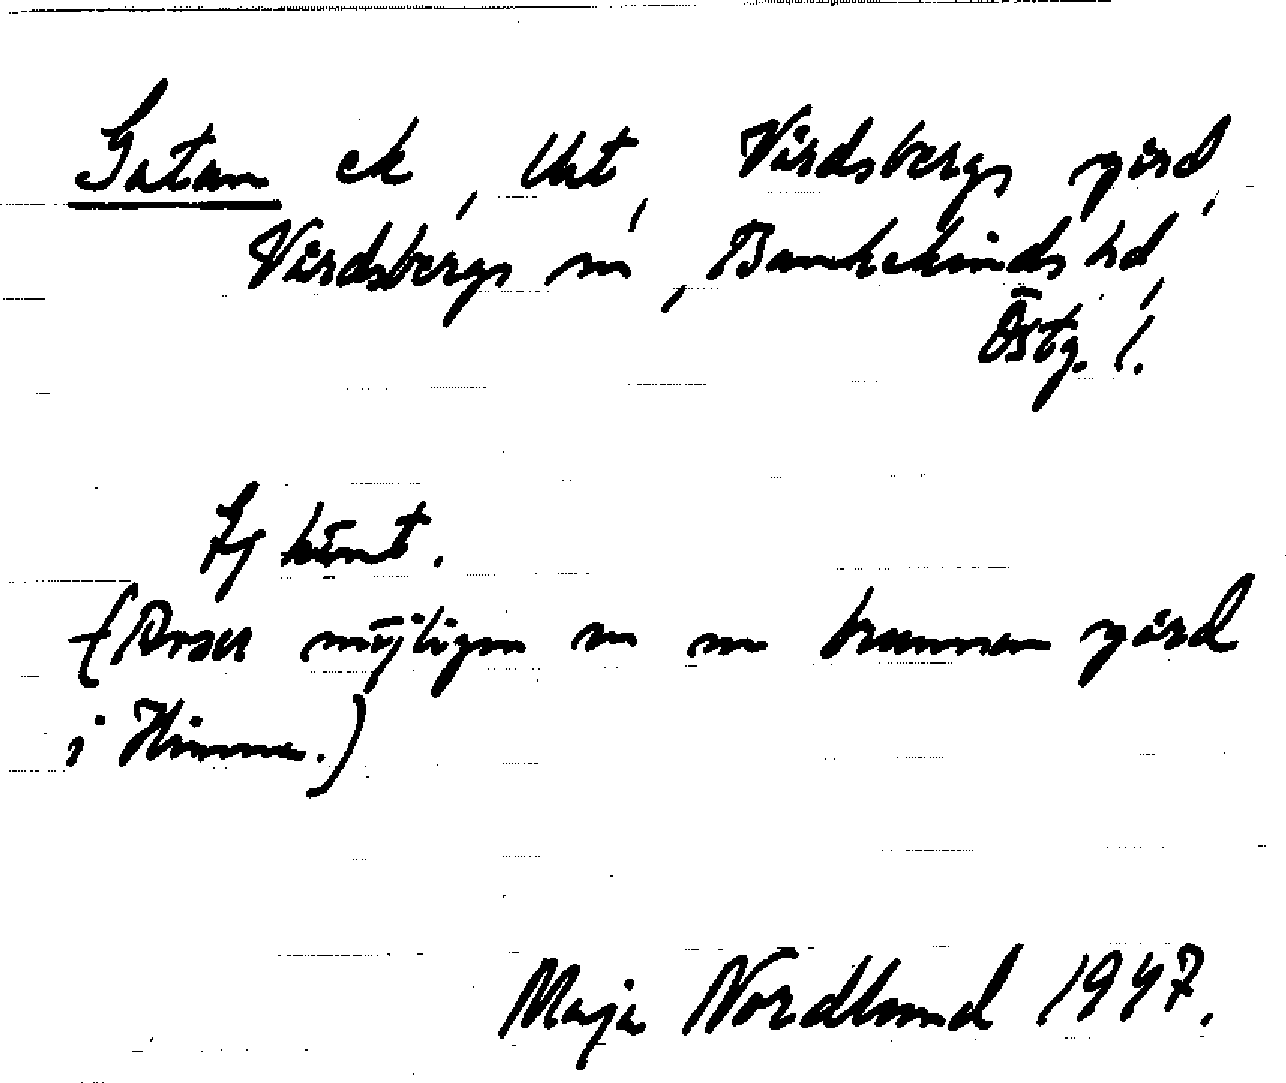 Gatan ek, Urt, Vårdsbergs gård,
Vårdsbergs sn, Bankekinds hd,
Östg. l.
Ej känt.
(Avser möjligen en nu brunnen gård
i Himna.)
Maja Nordlund 1947.